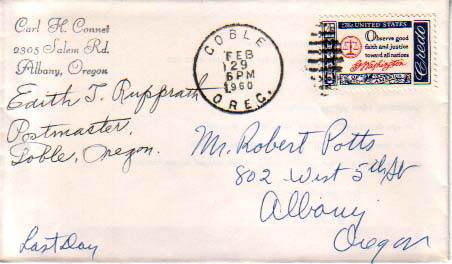 Carl H. Connet
2305 Salem Rd.
Albany, Oregon
COBLE
FEB
29
6PM
1960
OREG.
UNITED STATES
Observe good
faith and justice
toward all nations
G Washington
Credo
Edith T. Rupprath
Postmaster,
Coble, Oregon.
Mr. Robert Potts
802 West 5th St
Albany
Oregon
Last Day